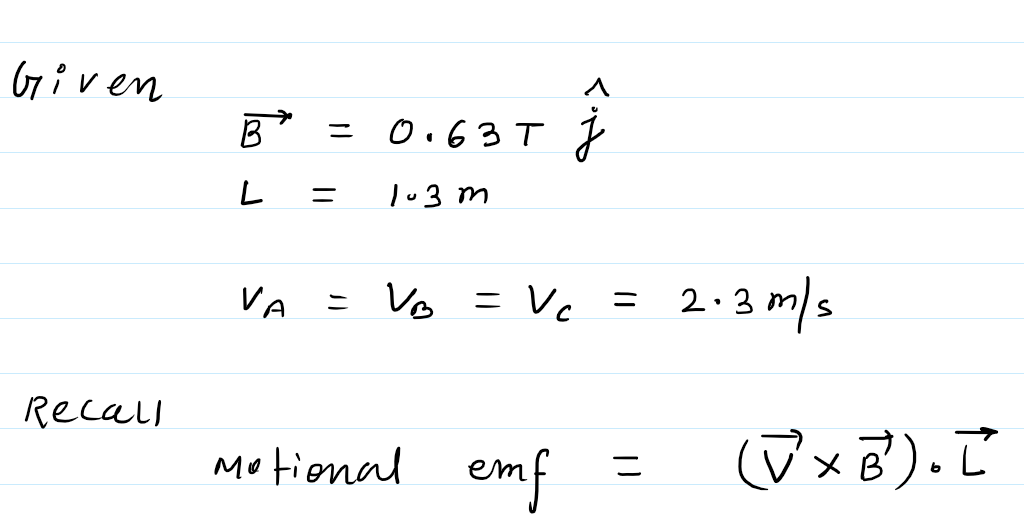 Given
B⃗ = 0.63 T ĵ
L = 1.3 m
V_A = V_B = V_C = 2.3 m/s
Recall
Motional emf = (V⃗ × B⃗) . L⃗